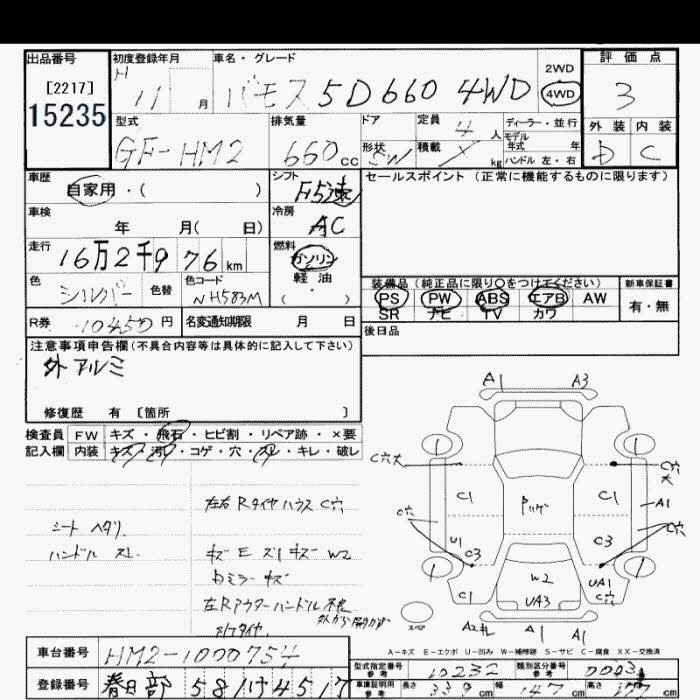 出品番号 初度登録年月 車名・グレード 評価点
[2217] H 11 月 バモス 5D 660 4WD 2WD 4WD 3
15235
型式 排気量 ドア 定員 4 人 ディーラー・並行 外装 内装
モデル年式 年
GF-HM2 660cc 形状 SW 積載 kg ハンドル 左・右 D C
車歴 シフト セールスポイント (正常に機能するものに限ります)
自家用・( ) F5速
車検 年 月( 日) 冷房 AC
走行 16万2千9 76 km 燃料 ガソリン
軽油
( ・ )
色 シルバー 色替 色コード NH583M
装備品 (純正品に限り○をつけてください) 新車保証書
PS PW ABS エアB AW 有・無
SR ナビ TV カワ
R券 10450 円 名変通知期限 月 日
後日品
注意事項申告欄(不具合内容等は具体的に記入して下さい)
外アルミ
修復歴 有 [箇所 ]
検査員 FW キズ・飛石・ヒビ割・リペア跡・×要
記入欄 内装 キズ・汚レ・コゲ・穴・スレ・キレ・破レ
A1 A3
1 1
C穴大 C穴大
C1 C1 A1
C穴 C穴
U1 C3 C3
1 W2 UA1 1
C1 UA3 C穴
スペア A1 A1
左右Rタイヤハウス C穴
シートヘタリ
ハンドルスレ
キズ E ズレ キズ W2
ミラーキズ
左Rアウターハンドル不良
A-キズ E-エクボ U-凹み W-補修跡 S-サビ C-腐食 XX-交換済
車台番号 HM2-1000754
型式指定番号 参考 10232 類別区分番号 参考
登録番号 春日部 58 け 4517
車庫証明用 参考 長さ 339 cm 幅 147 cm 高さ cm